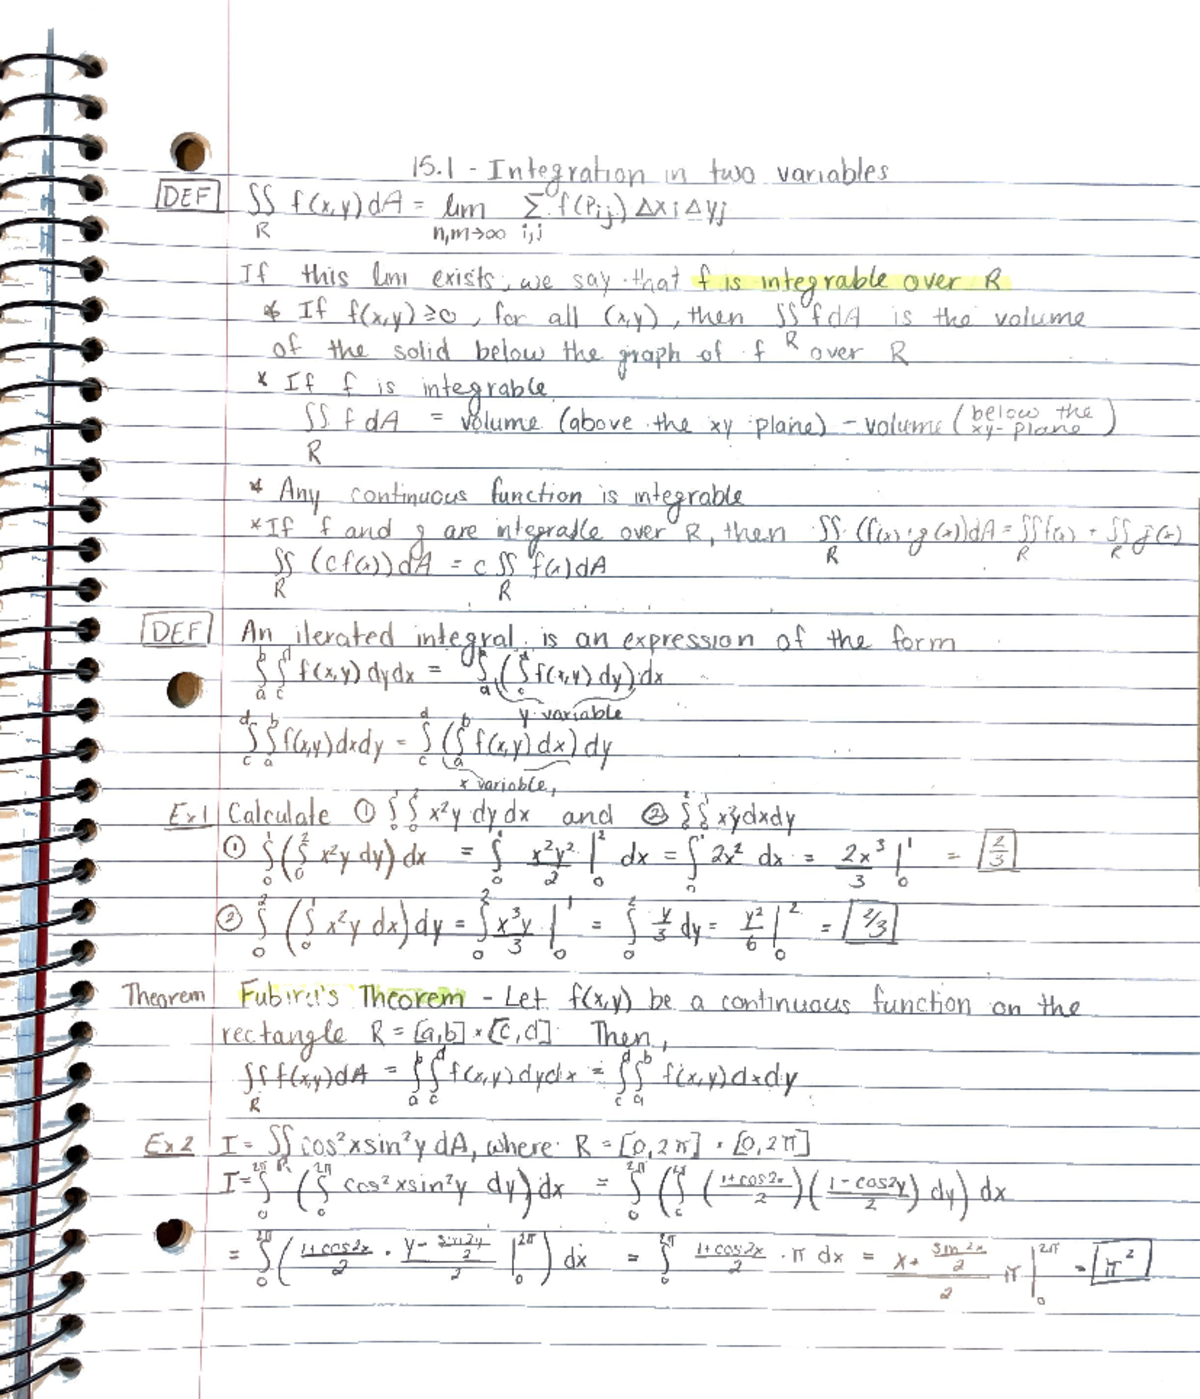 15.1 - Integration in two variables
DEF ∬_R f(x,y)dA = lim_{n,m→∞} Σ_{i,j} f(P_{ij}) Δx_i Δy_j
If this lim exists, we say that f is integrable over R
* If f(x,y) ≥ 0, for all (x,y), then ∬_R f dA is the volume
of the solid below the graph of f over R
* If f is integrable
∬_R f dA = volume (above the xy plane) - volume (below the xy-plane)
* Any continuous function is integrable
* If f and g are integrable over R, then ∬_R (f(x)+g(x))dA = ∬_R f(x) + ∬_R g(x)
∬_R (cf(x))dA = c ∬_R f(x)dA
DEF An iterated integral is an expression of the form
∫_a^b ∫_c^d f(x,y) dydx = ∫_a^b (∫_c^d f(x,y) dy) dx
y variable
∫_c^d ∫_a^b f(x,y)dxdy = ∫_c^d (∫_a^b f(x,y)dx) dy
x variable
Ex1 Calculate ① ∫_0^1 ∫_0^2 x²y dydx and ② ∫_0^2 ∫_0^1 x²y dxdy
① ∫_0^1 (∫_0^2 x²y dy) dx = ∫_0^1 x²y²/2 |_0^2 dx = ∫_0^1 2x² dx = 2x³/3 |_0^1 = 2/3
② ∫_0^2 (∫_0^1 x²y dx) dy = ∫_0^2 x³y/3 |_0^1 = ∫_0^2 y/3 dy = y²/6 |_0^2 = 2/3
Theorem Fubini's Theorem - Let f(x,y) be a continuous function on the
rectangle R = [a,b] × [c,d]. Then,
∬_R f(x,y)dA = ∫_a^b ∫_c^d f(x,y) dydx = ∫_c^d ∫_a^b f(x,y) dxdy
Ex2 I = ∬_R cos²x sin²y dA, where R = [0,2π] × [0,2π]
I = ∫_0^{2π} (∫_0^{2π} cos²x sin²y dy) dx = ∫_0^{2π} (∫_0^{2π} ((1+cos2x)/2)((1-cos2y)/2) dy) dx
= ∫_0^{2π} ((1+cos2x)/2 · (y - sin2y/2)/2 |_0^{2π}) dx = ∫_0^{2π} (1+cos2x)/2 · π dx = (x + sin2x/2)/2 π |_0^{2π} = π²